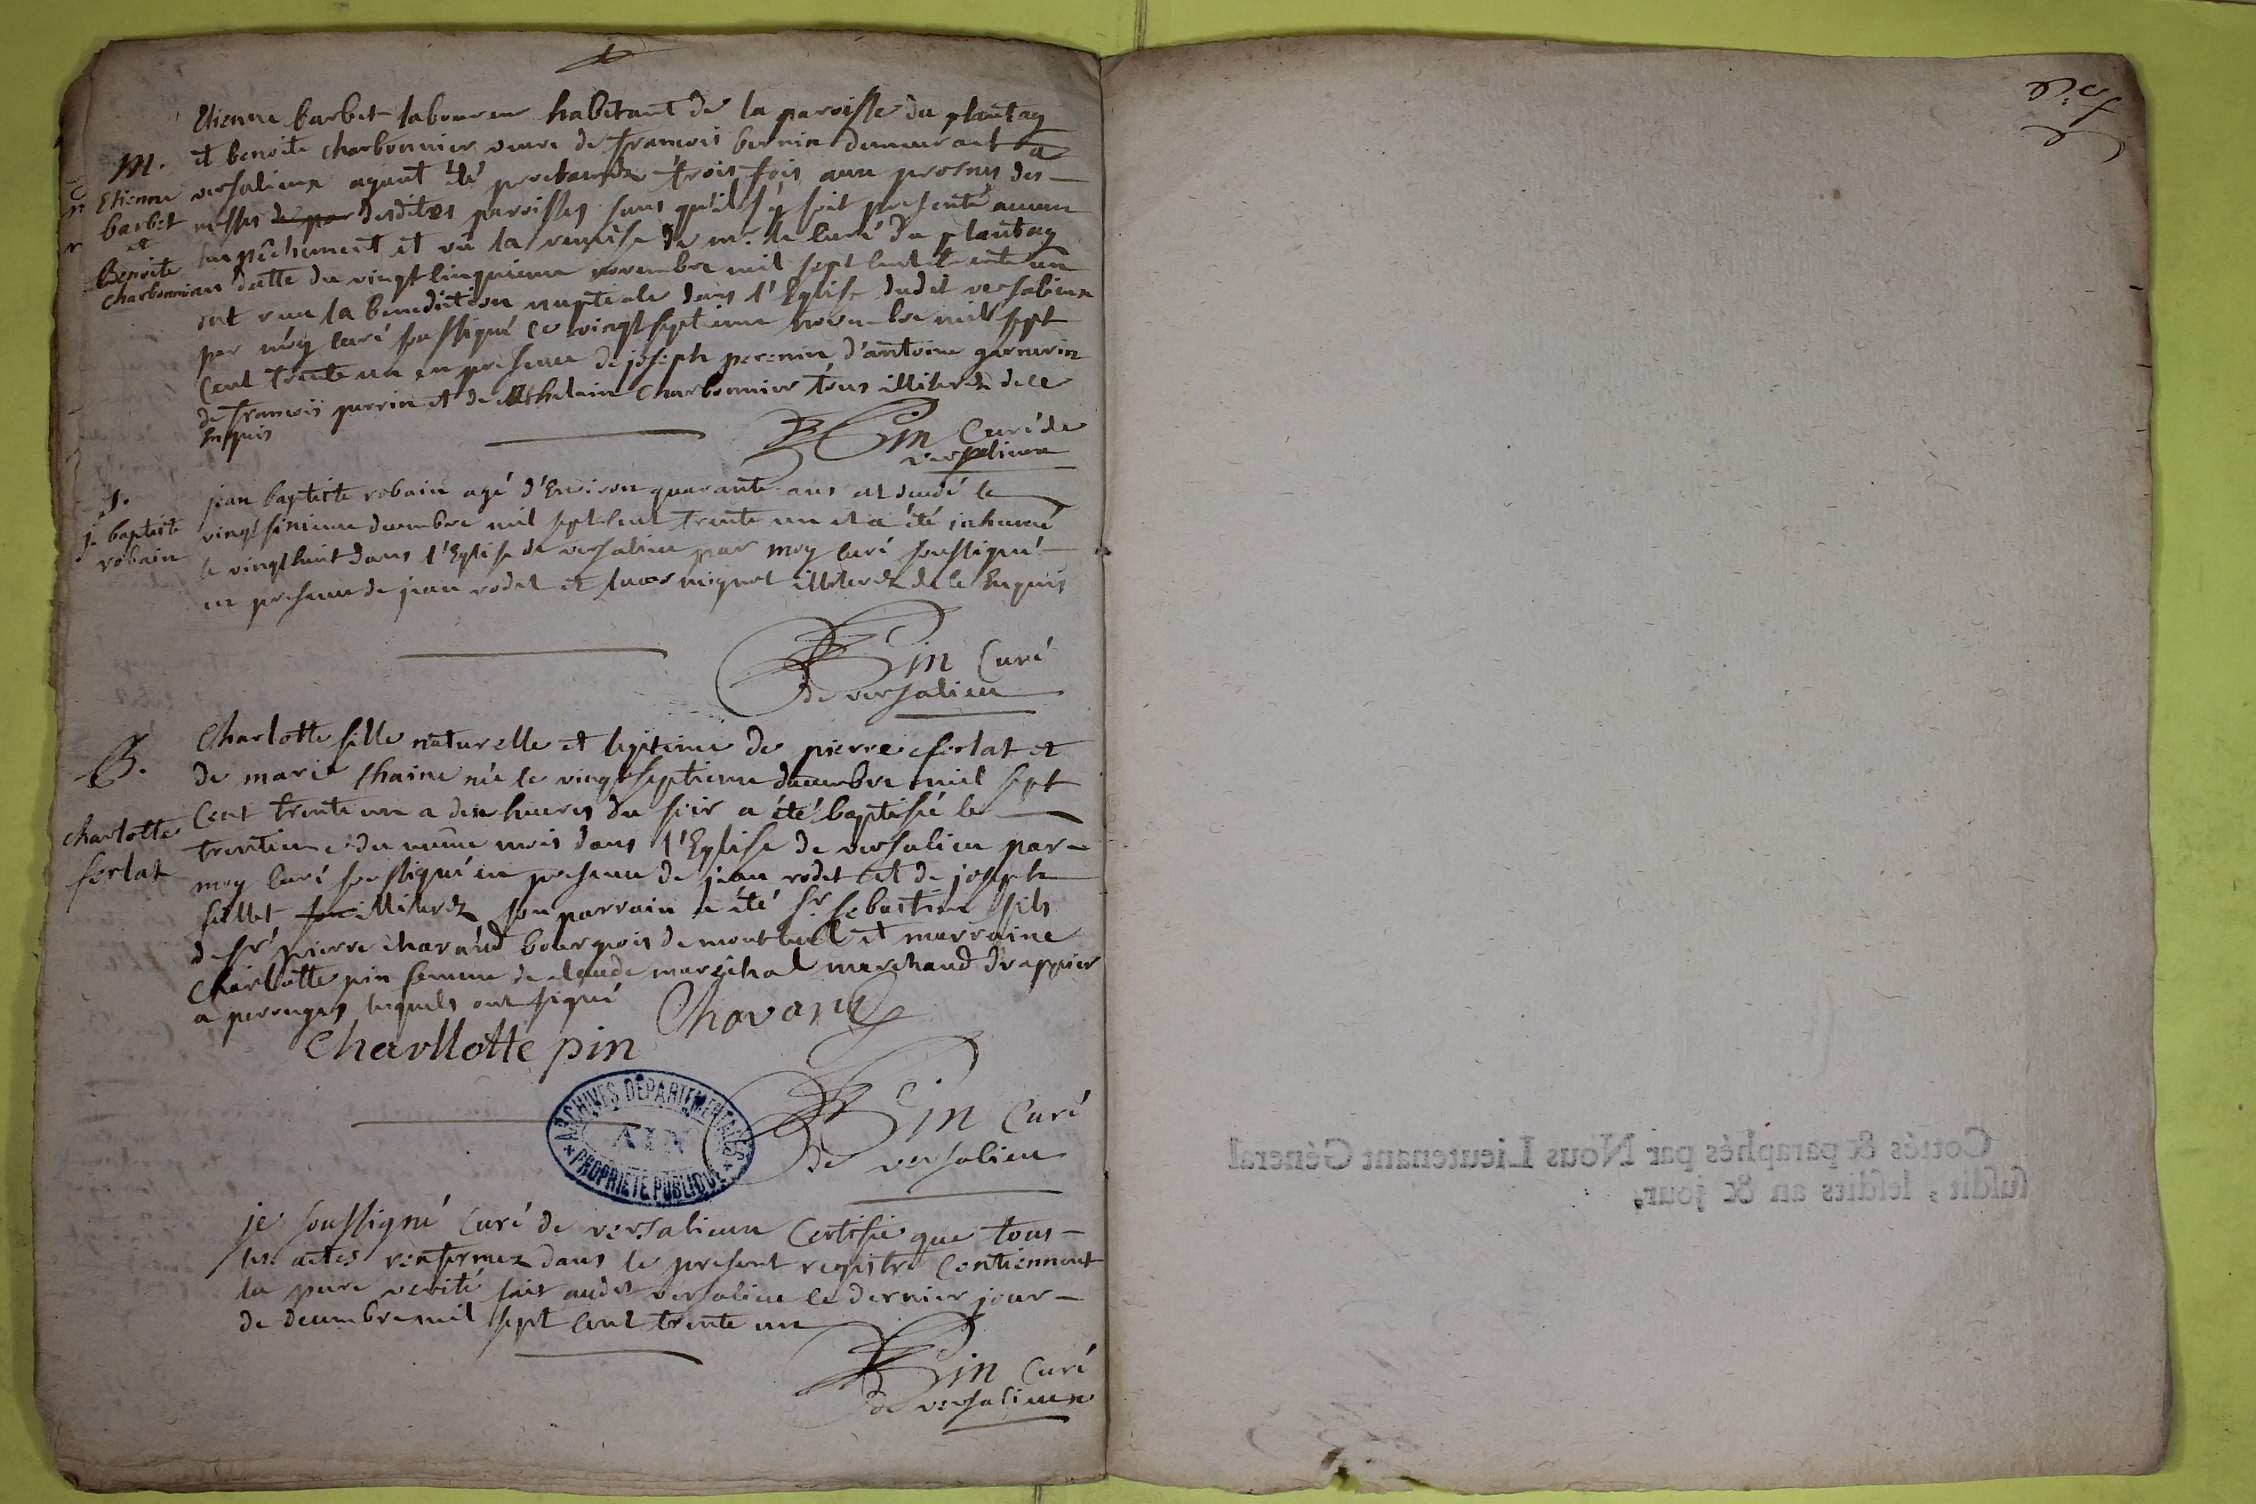 Etienne barbet laboureur habitant de la paroisse du plantay
M.
et benoite charbonnier veuve de francois bernin demeurant a
Etienne
versalieux ayant été proclamez trois fois aux prosnes des
barbet
messes de par desdites paroisses sans qu'il s'y soit presenté aucun
et
empêchement et vu la remise de mr. le curé du plantay
Benoite
charbonnier
datte du vingt cinquieme novembre mil sept cent trente un
ont reçu la benediction nuptiale dans l'Eglise dudit versalieux
par moy curé soussigné ce vingt septieme novembre mil sept
Cent trente un en presence de joseph perenin d'antoine garnerin
de francois perrin et de Charbonnier tous illiterez de ce
Enquis
Pin Curé de
versalieux
j. baptiste
robain
jean baptiste robain agé d'Environ quarante ans est decedé le
vingt sixieme decembre mil sept cent trente un et a été inhumé
le vingt huit dans l'Eglise de versalieu par moy curé soussigné
en presence de jean rodet et mignot illiterez de ce Enquis
Pin Curé
de versalieu
B.
charlotte
ferlat
Charlotte fille naturelle et legitime de pierre ferlat et
de marie chaine née le vingt septieme decembre mil sept
Cent trente un a dix heures du soir a été baptisée le
trentieme du même mois dans l'Eglise de versalieu par
moy curé soussigné en presence de jean rodet et de joseph
illiterez son parrain a été sr. sebastien fils
de sr pierre charand bourgeois de montluel et marraine
Charlotte pin femme de claude maréchal marchand drappier
a perouges lesquels ont signé
Chavand
Charllotte pin
Pin Curé
de versalieu
ARCHIVES DÉPARTEMENTALES
AIN
PROPRIÉTÉ PUBLIQUE
je soussigné Curé de versalieux Certifie que tous
les actes renfermez dans le present registre Contiennent
la pure verité fait audit versalieu le dernier jour
de decembre mil sept cent trente un
Pin Curé
de versalieux
Cottés & paraphés par Nous Lieutenant Géneral
susdit, lesdits an & jour,